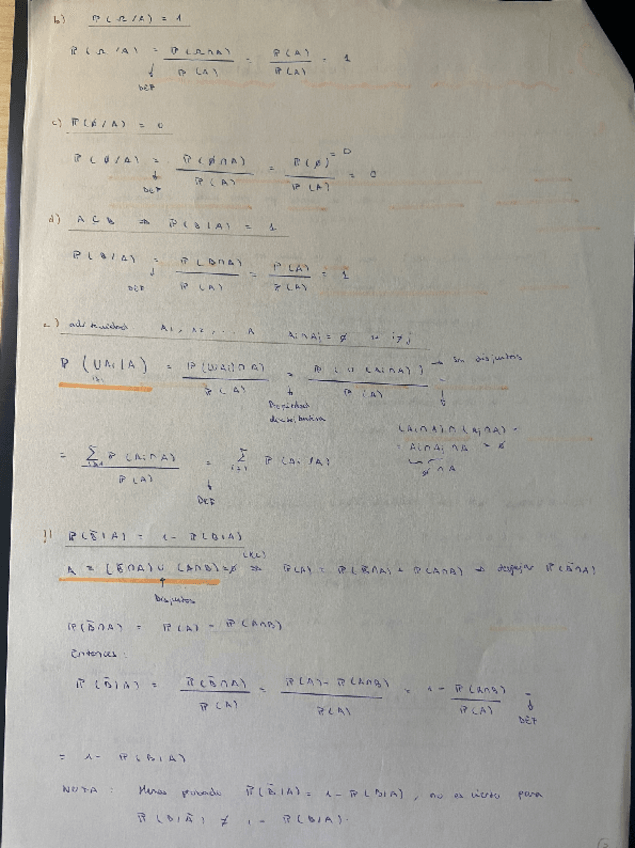 b) P(Ω/A) = 1
P(Ω/A) = P(Ω∩A) / P(A) = P(A) / P(A) = 1
DEF
c) P(ø/A) = 0
P(ø/A) = P(ø∩A) / P(A) = P(ø) / P(A) = 0
= 0
DEF
d) A ⊂ B ⇒ P(B/A) = 1
P(B/A) = P(B∩A) / P(A) = P(A) / P(A) = 1
DEF
e) aditividad A1, A2, ... A Ai∩Aj = ø si i≠j
P(∪Ai/A) = P((∪Ai)∩A) / P(A) = P(∪(Ai∩A)) / P(A) → Son disjuntos
Propiedad distributiva
(Ai∩A)∩(Aj∩A) =
= Ai∩Aj∩A = ø
ø∩A
= Σ P(Ai∩A) / P(A) = Σ P(Ai/A)
DEF
P(B̄/A) = 1 - P(B/A)
A = (B̄∩A) ∪ (A∩B) = ø ⇒ P(A) = P(B̄∩A) + P(A∩B) → despejar P(B̄∩A)
Disjuntos
P(B̄∩A) = P(A) - P(A∩B)
Entonces:
P(B̄/A) = P(B̄∩A) / P(A) = P(A) - P(A∩B) / P(A) = 1 - P(A∩B) / P(A) =
DEF
= 1 - P(B/A)
NOTA: Hemos probado P(B̄/A) = 1 - P(B/A), no es cierto para
P(B/Ā) ≠ 1 - P(B/A).